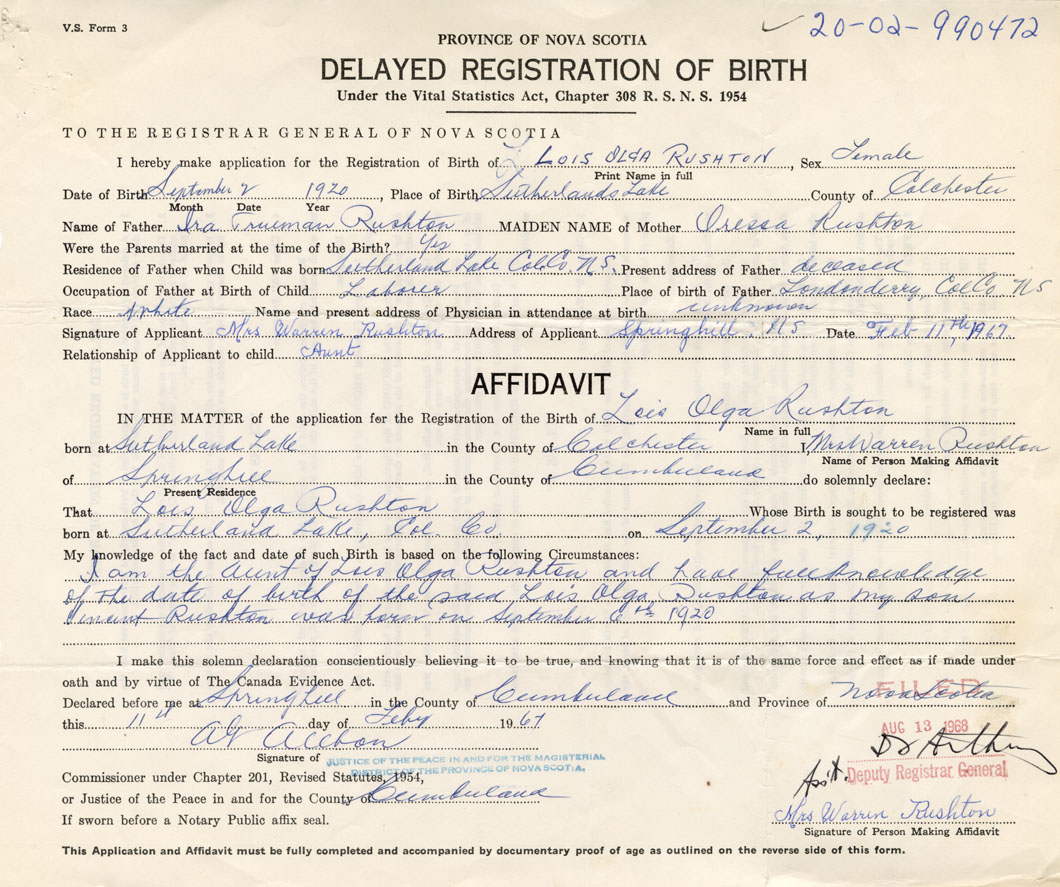 V.S. Form 3
20-02-990472
PROVINCE OF NOVA SCOTIA
DELAYED REGISTRATION OF BIRTH
Under the Vital Statistics Act, Chapter 308 R. S. N. S. 1954
TO THE REGISTRAR GENERAL OF NOVA SCOTIA
I hereby make application for the Registration of Birth of LOIS OLGA RUSHTON, Sex Female
Print Name in full
Date of Birth September 2 1920, Place of Birth Sutherlands Lake County of Colchester
Month Date Year
Name of Father Ira Trueman Rushton MAIDEN NAME of Mother Oressa Rushton
Were the Parents married at the time of the Birth? Yes
Residence of Father when Child was born Sutherland Lake Col. Co. N.S. Present address of Father deceased
Occupation of Father at Birth of Child Laborer Place of birth of Father Londonderry, Col Co. NS
Race White Name and present address of Physician in attendance at birth unknown
Signature of Applicant Mrs. Warren Rushton Address of Applicant Springhill NS Date Feb 11th, 1967
Relationship of Applicant to child Aunt
AFFIDAVIT
IN THE MATTER of the application for the Registration of the Birth of Lois Olga Rushton
Name in full
born at Sutherland Lake in the County of Colchester I, Mrs Warren Rushton
Name of Person Making Affidavit
of Springhill in the County of Cumberland do solemnly declare:
Present Residence
That Lois Olga Rushton Whose Birth is sought to be registered was
born at Sutherland Lake, Col. Co. on September 2, 1920
My knowledge of the fact and date of such Birth is based on the following Circumstances:
I am the Aunt of Lois Olga Rushton and have full knowledge
of the date of birth of the said Lois Olga Rushton as my son
Vincent Rushton was born on September 6th 1920
I make this solemn declaration conscientiously believing it to be true, and knowing that it is of the same force and effect as if made under
oath and by virtue of The Canada Evidence Act.
Declared before me at Springhill in the County of Cumberland and Province of Nova Scotia
FILED
this 11th day of Feby 1967
AUG 13 1968
Signature of
JUSTICE OF THE PEACE IN AND FOR THE MAGISTERIAL
DISTRICT OF THE PROVINCE OF NOVA SCOTIA.
Commissioner under Chapter 201, Revised Statutes, 1954,
Asst. Deputy Registrar General
or Justice of the Peace in and for the County of Cumberland
Mrs Warren Rushton
If sworn before a Notary Public affix seal.
Signature of Person Making Affidavit
This Application and Affidavit must be fully completed and accompanied by documentary proof of age as outlined on the reverse side of this form.